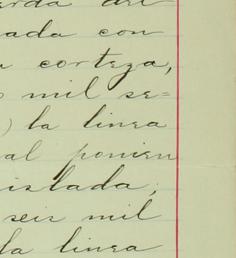 erda del
ada con
a corteza,
mil se=
) la linea
al ponien
islada,
seis mil
la linea